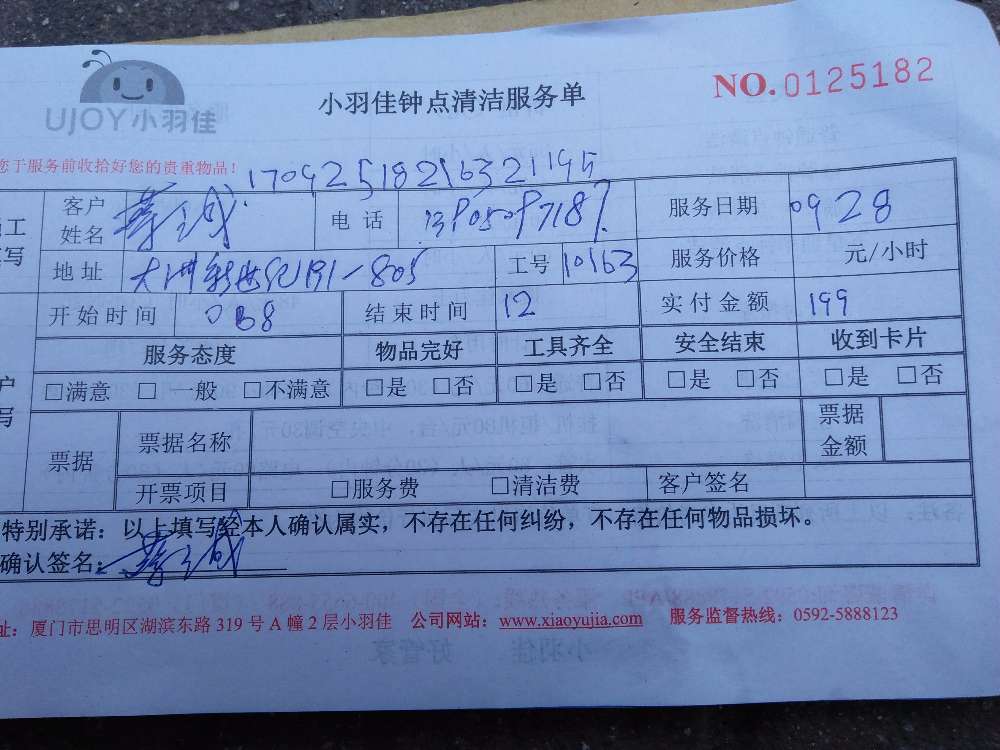 UJOY小羽佳
小羽佳钟点清洁服务单
NO.0125182
您于服务前收拾好您的贵重物品!
17092518216321195
工 客户姓名 电话 服务日期 0928
写 地址 工号 10163 服务价格 元/小时
开始时间 结束时间 12 实付金额 199
服务态度 物品完好 工具齐全 安全结束 收到卡片
户 □满意 □一般 □不满意 □是 □否 □是 □否 □是 □否 □是 □否
写 票据 票据名称 票据金额
开票项目 □服务费 □清洁费 客户签名
特别承诺:以上填写经本人确认属实,不存在任何纠纷,不存在任何物品损坏。
确认签名:
址:厦门市思明区湖滨东路 319 号 A 幢 2 层小羽佳 公司网站:www.xiaoyujia.com 服务监督热线:0592-5888123